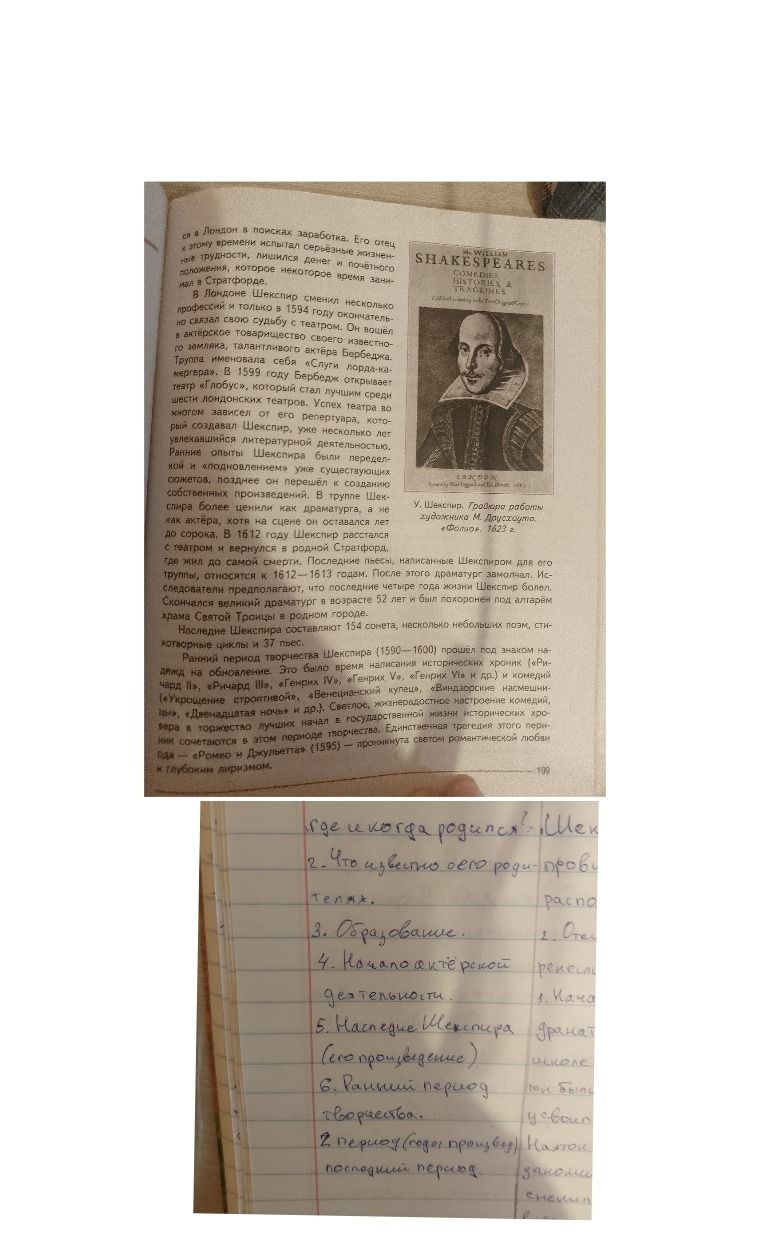 ся в Лондон в поисках заработка. Его отец
к этому времени испытал серьёзные жизнен-
ные трудности, лишился денег и почётного
положения, которое некоторое время зани-
мал в Стратфорде.
В Лондоне Шекспир сменил несколько
профессий и только в 1594 году окончатель-
но связал свою судьбу с театром. Он вошёл
в актёрское товарищество своего известно-
го земляка, талантливого актёра Бербеджа.
Труппа именовала себя «Слуги лорда-ка-
мергера». В 1599 году Бербедж открывает
театр «Глобус», который стал лучшим среди
шести лондонских театров. Успех театра во
многом зависел от его репертуара, кото-
рый создавал Шекспир, уже несколько лет
увлекавшийся литературной деятельностью.
Ранние опыты Шекспира были передел-
кой и «подновлением» уже существующих
сюжетов, позднее он перешёл к созданию
собственных произведений. В труппе Шек-
спира более ценили как драматурга, а не
как актёра, хотя на сцене он оставался лет
до сорока. В 1612 году Шекспир расстался
с театром и вернулся в родной Стратфорд,
где жил до самой смерти. Последние пьесы, написанные Шекспиром для его
труппы, относятся к 1612—1613 годам. После этого драматург замолчал. Ис-
следователи предполагают, что последние четыре года жизни Шекспир болел.
Скончался великий драматург в возрасте 52 лет и был похоронен под алтарём
храма Святой Троицы в родном городе.
Наследие Шекспира составляют 154 сонета, несколько небольших поэм, сти-
хотворные циклы и 37 пьес.
Ранний период творчества Шекспира (1590—1600) прошёл под знаком на-
дежд на обновление. Это было время написания исторических хроник («Ри-
чард II», «Ричард III», «Генрих IV», «Генрих V», «Генрих VI» и др.) и комедий
(«Укрощение строптивой», «Венецианский купец», «Виндзорские насмешни-
цы», «Двенадцатая ночь» и др.). Светлое, жизнерадостное настроение комедий,
вера в торжество лучших начал в государственной жизни исторических хро-
ник сочетаются в этом периоде творчества. Единственная трагедия этого пери-
ода — «Ромео и Джульетта» (1595) — проникнута светом романтической любви
и глубоким лиризмом.
199
Mr. WILLIAM
SHAKESPEARES
COMEDIES,
HISTORIES, &
TRAGEDIES.
LONDON
У. Шекспир. Гравюра работы
художника М. Друсхоута.
«Фолио». 1623 г.
где и когда родился? Шек
2. Что известно о его роди- пров
телях. распо
3. Образование. 2. Отец
4. Начало актёрской ремесл
деятельности. Нача
5. Наследие Шекспира драмат
(его произведение) школе
6. Ранний период
творчества. усвоил
2 период (годы, произвед) На этом
последний период. закончи
сменил